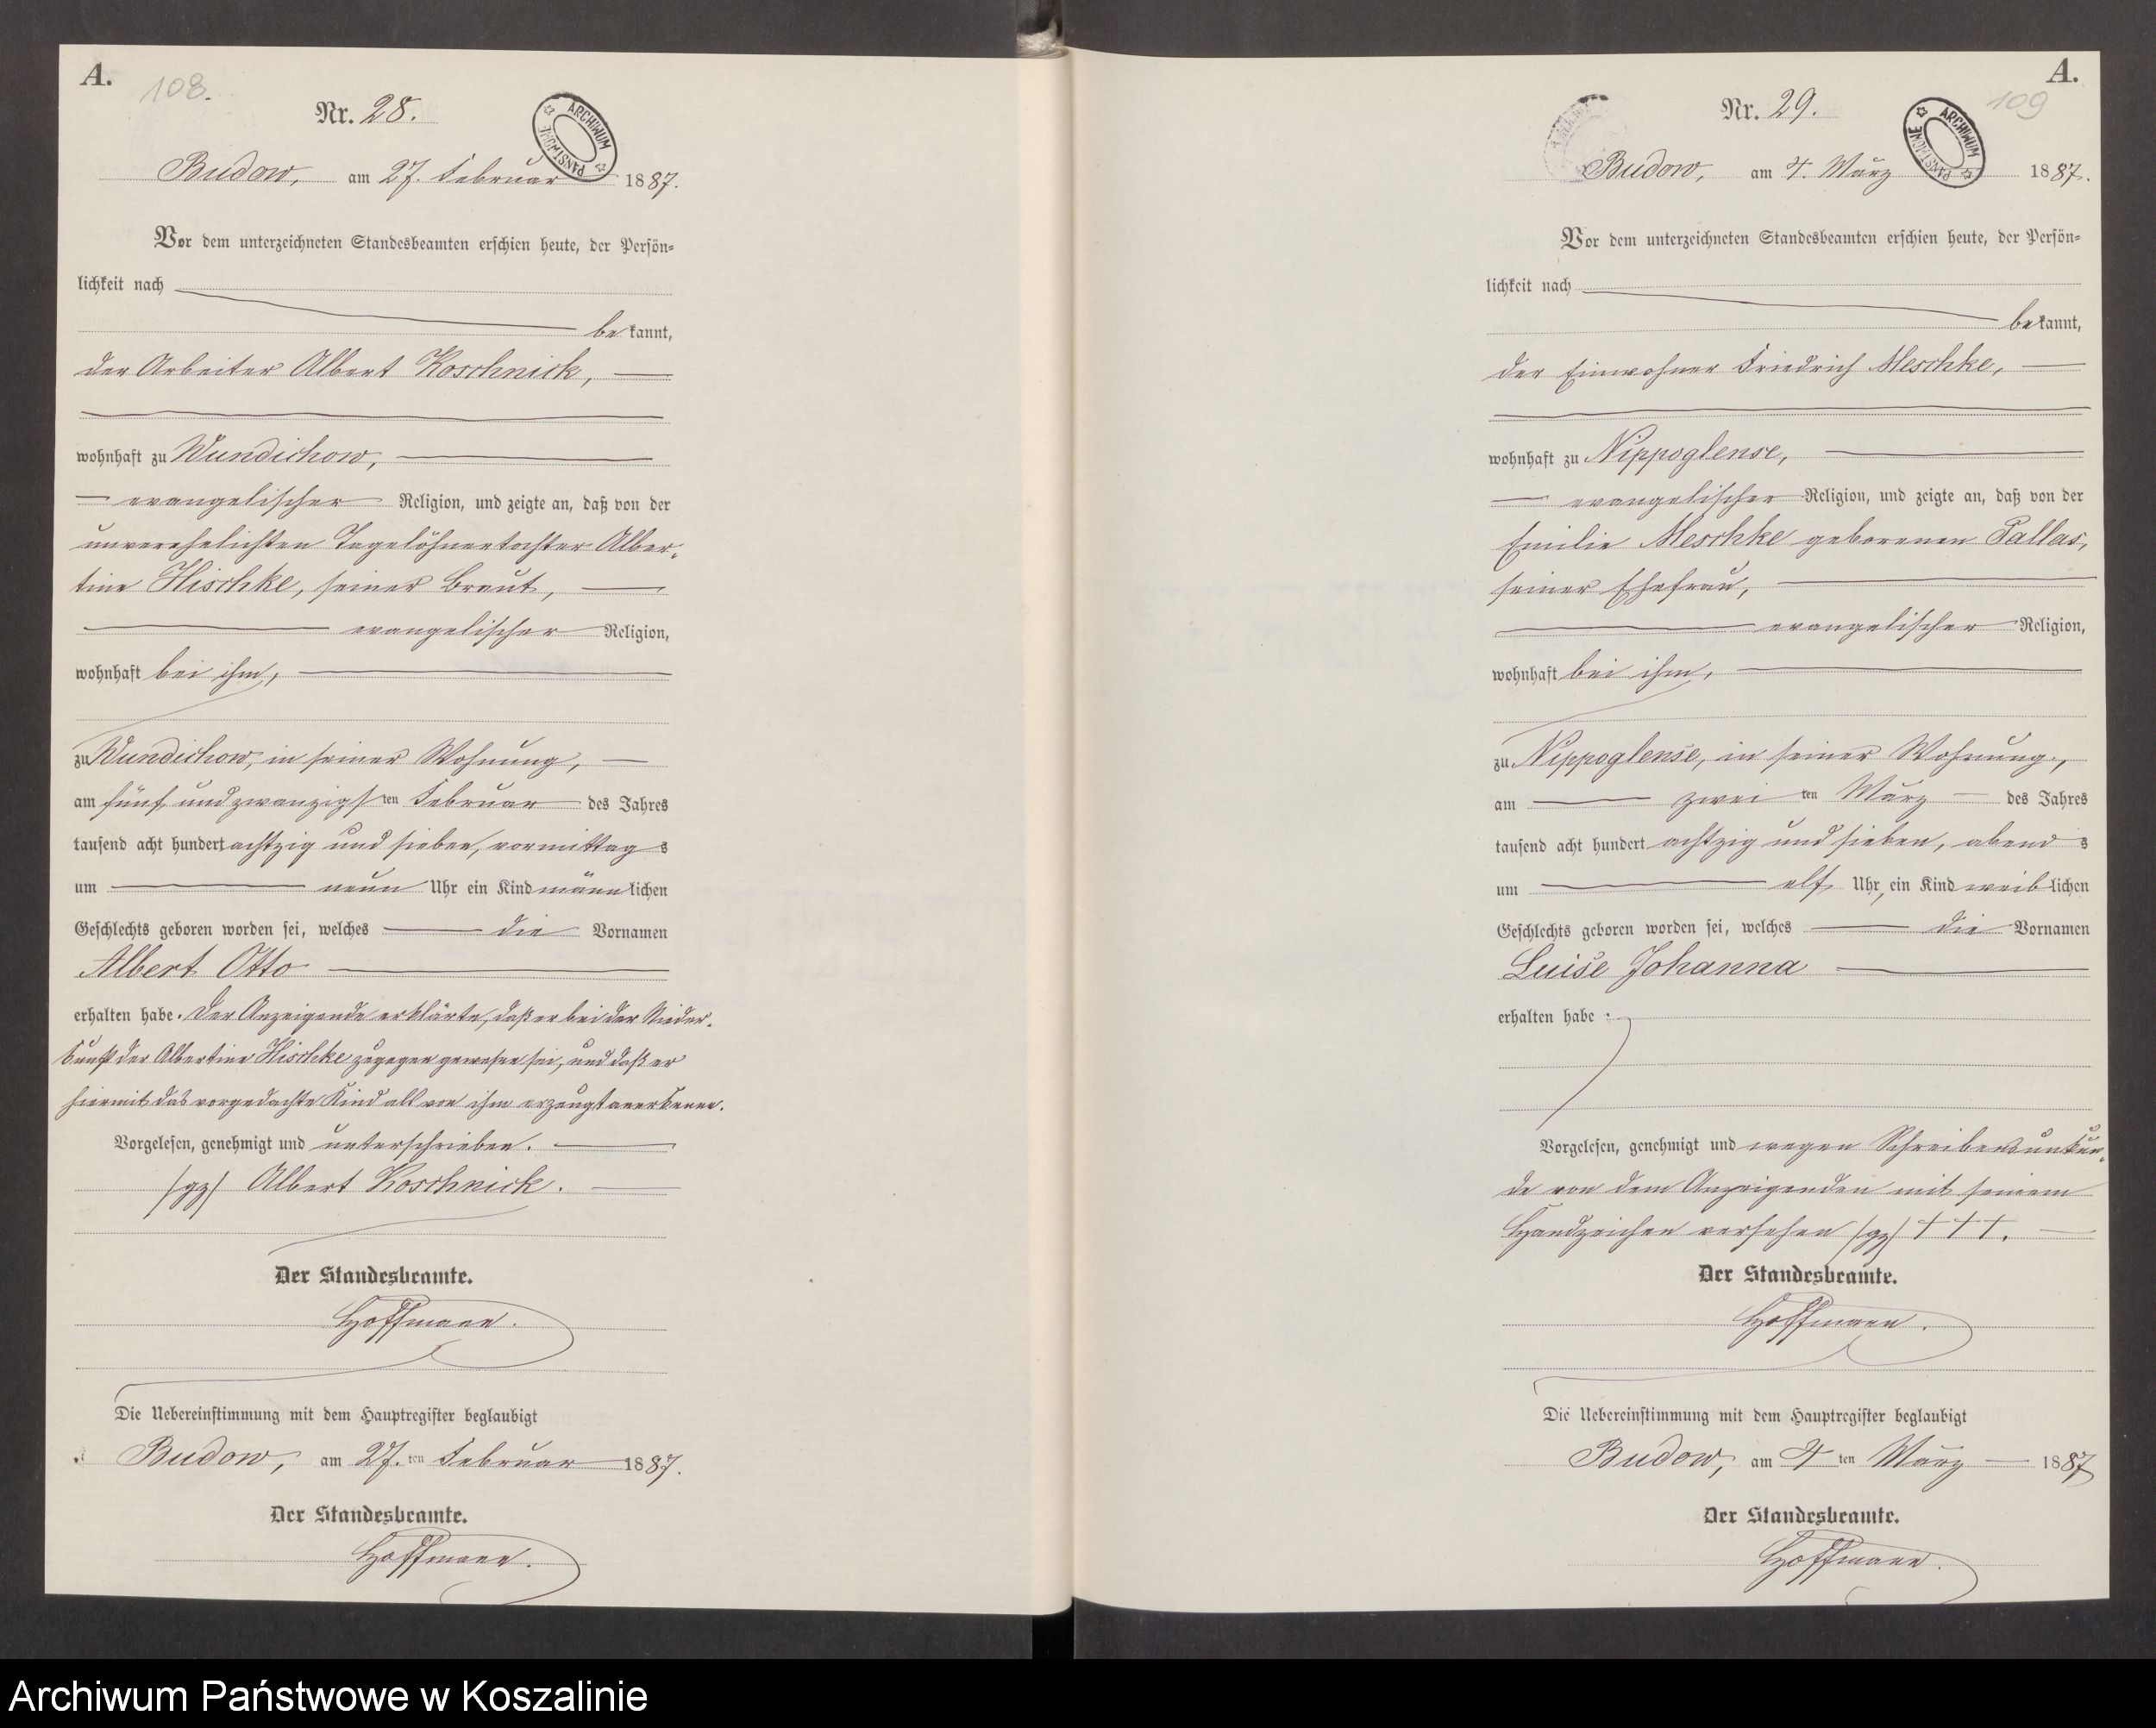 A.
108.
Nr. 28.
ARCHIWUM PAŃSTWOWE
Budow, am 27. Februar 1887.
Vor dem unterzeichneten Standesbeamten erschien heute, der Persön=
lichkeit nach
bekannt,
der Arbeiter Albert Koschnick,
wohnhaft zu Wundichow,
evangelischer Religion, und zeigte an, daß von der
unverehelichten Tagelöhnertochter Alber-
tine Hischke, seiner Braut,
evangelischer Religion,
wohnhaft bei ihm,
zu Wundichow, in seiner Wohnung,
am fünf und zwanzigsten Februar des Jahres
tausend acht hundert achtzig und sieben, vormittags
um neun Uhr ein Kind männlichen
Geschlechts geboren worden sei, welches die Vornamen
Albert Otto
erhalten habe. Der Anzeigende erklärte, daß er bei der Nieder-
kunft der Albertine Hischke zugegen gewesen sei, und daß er
hiermit das vorgedachte Kind als von ihm erzeugt anerkenne.
Vorgelesen, genehmigt und unterschrieben.
(gz) Albert Koschnick.
Der Standesbeamte.
Hoffmann.
Die Uebereinstimmung mit dem Hauptregister beglaubigt
Budow, am 27.ten Februar 1887.
Der Standesbeamte.
Hoffmann.
A.
109
Nr. 29.
ARCHIWUM PAŃSTWOWE
Budow, am 4. März 1887.
Vor dem unterzeichneten Standesbeamten erschien heute, der Persön=
lichkeit nach
bekannt,
der Einwohner Friedrich Meschke,
wohnhaft zu Nippoglense,
evangelischer Religion, und zeigte an, daß von der
Emilie Meschke geborenen Pallas,
seiner Ehefrau,
evangelischer Religion,
wohnhaft bei ihm,
zu Nippoglense, in seiner Wohnung,
am zweiten März des Jahres
tausend acht hundert achtzig und sieben, abends
um elf Uhr, ein Kind weiblichen
Geschlechts geboren worden sei, welches die Vornamen
Luise Johanna
erhalten habe.
Vorgelesen, genehmigt und wegen Schreibensunkun-
de von dem Anzeigenden mit seinem
Handzeichen versehen (gz) + + +.
Der Standesbeamte.
Hoffmann.
Die Uebereinstimmung mit dem Hauptregister beglaubigt
Budow, am 4ten März 1887
Der Standesbeamte.
Hoffmann.
Archiwum Państwowe w Koszalinie